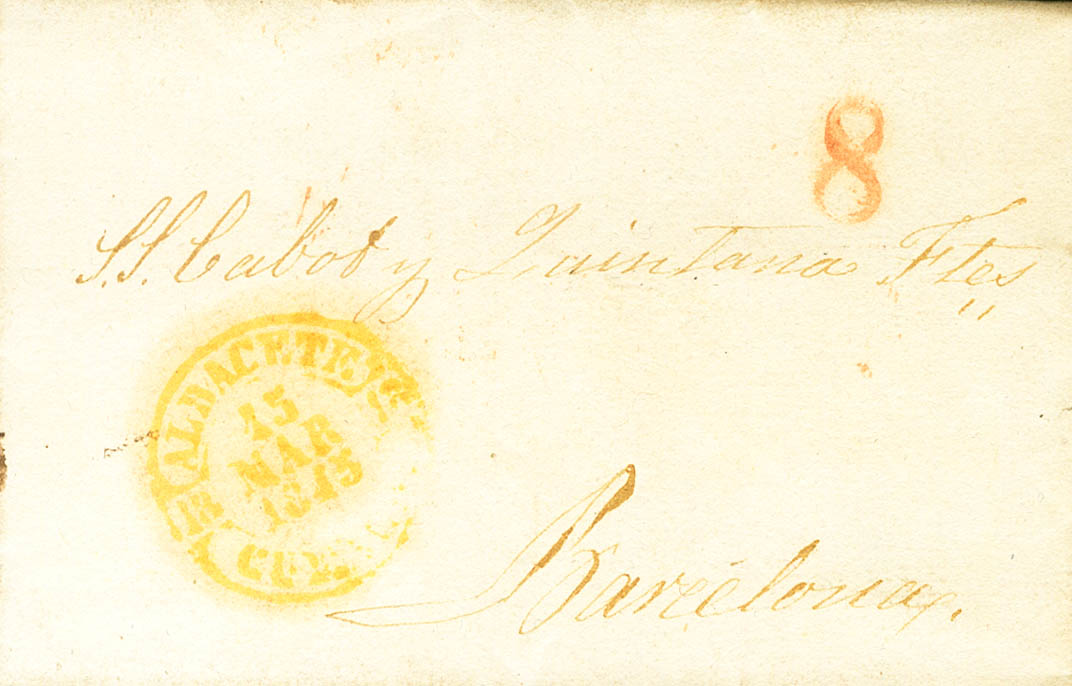 8
S.S. Cabot y Quintana Ftes
ALBACETE
15
MAR
184
Barcelona.